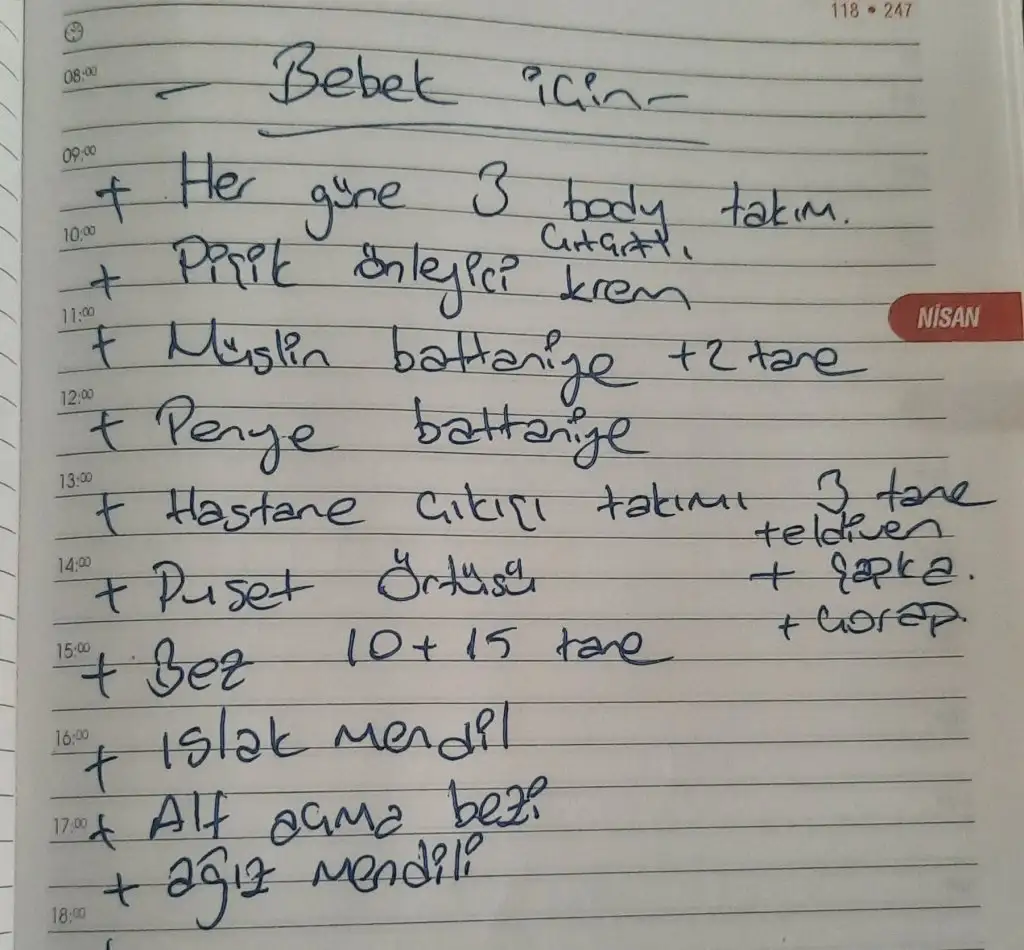 118 • 247
08:00
- Bebek için -
09:00
+ Her güne 3 body takım.
çıtçıtlı.
10:00
+ Pişik önleyici krem
11:00
NİSAN
+ Müslin battaniye +2 tane
12:00
+ Penye battaniye
13:00
+ Hastane çıkışı takımı 3 tane
+eldiven
14:00
+ Puset örtüsü + şapka.
+ çorap.
15:00
+ Bez 10 + 15 tane
16:00
+ ıslak mendil
17:00
+ Alt açma bezi
+ ağız mendili
18:00